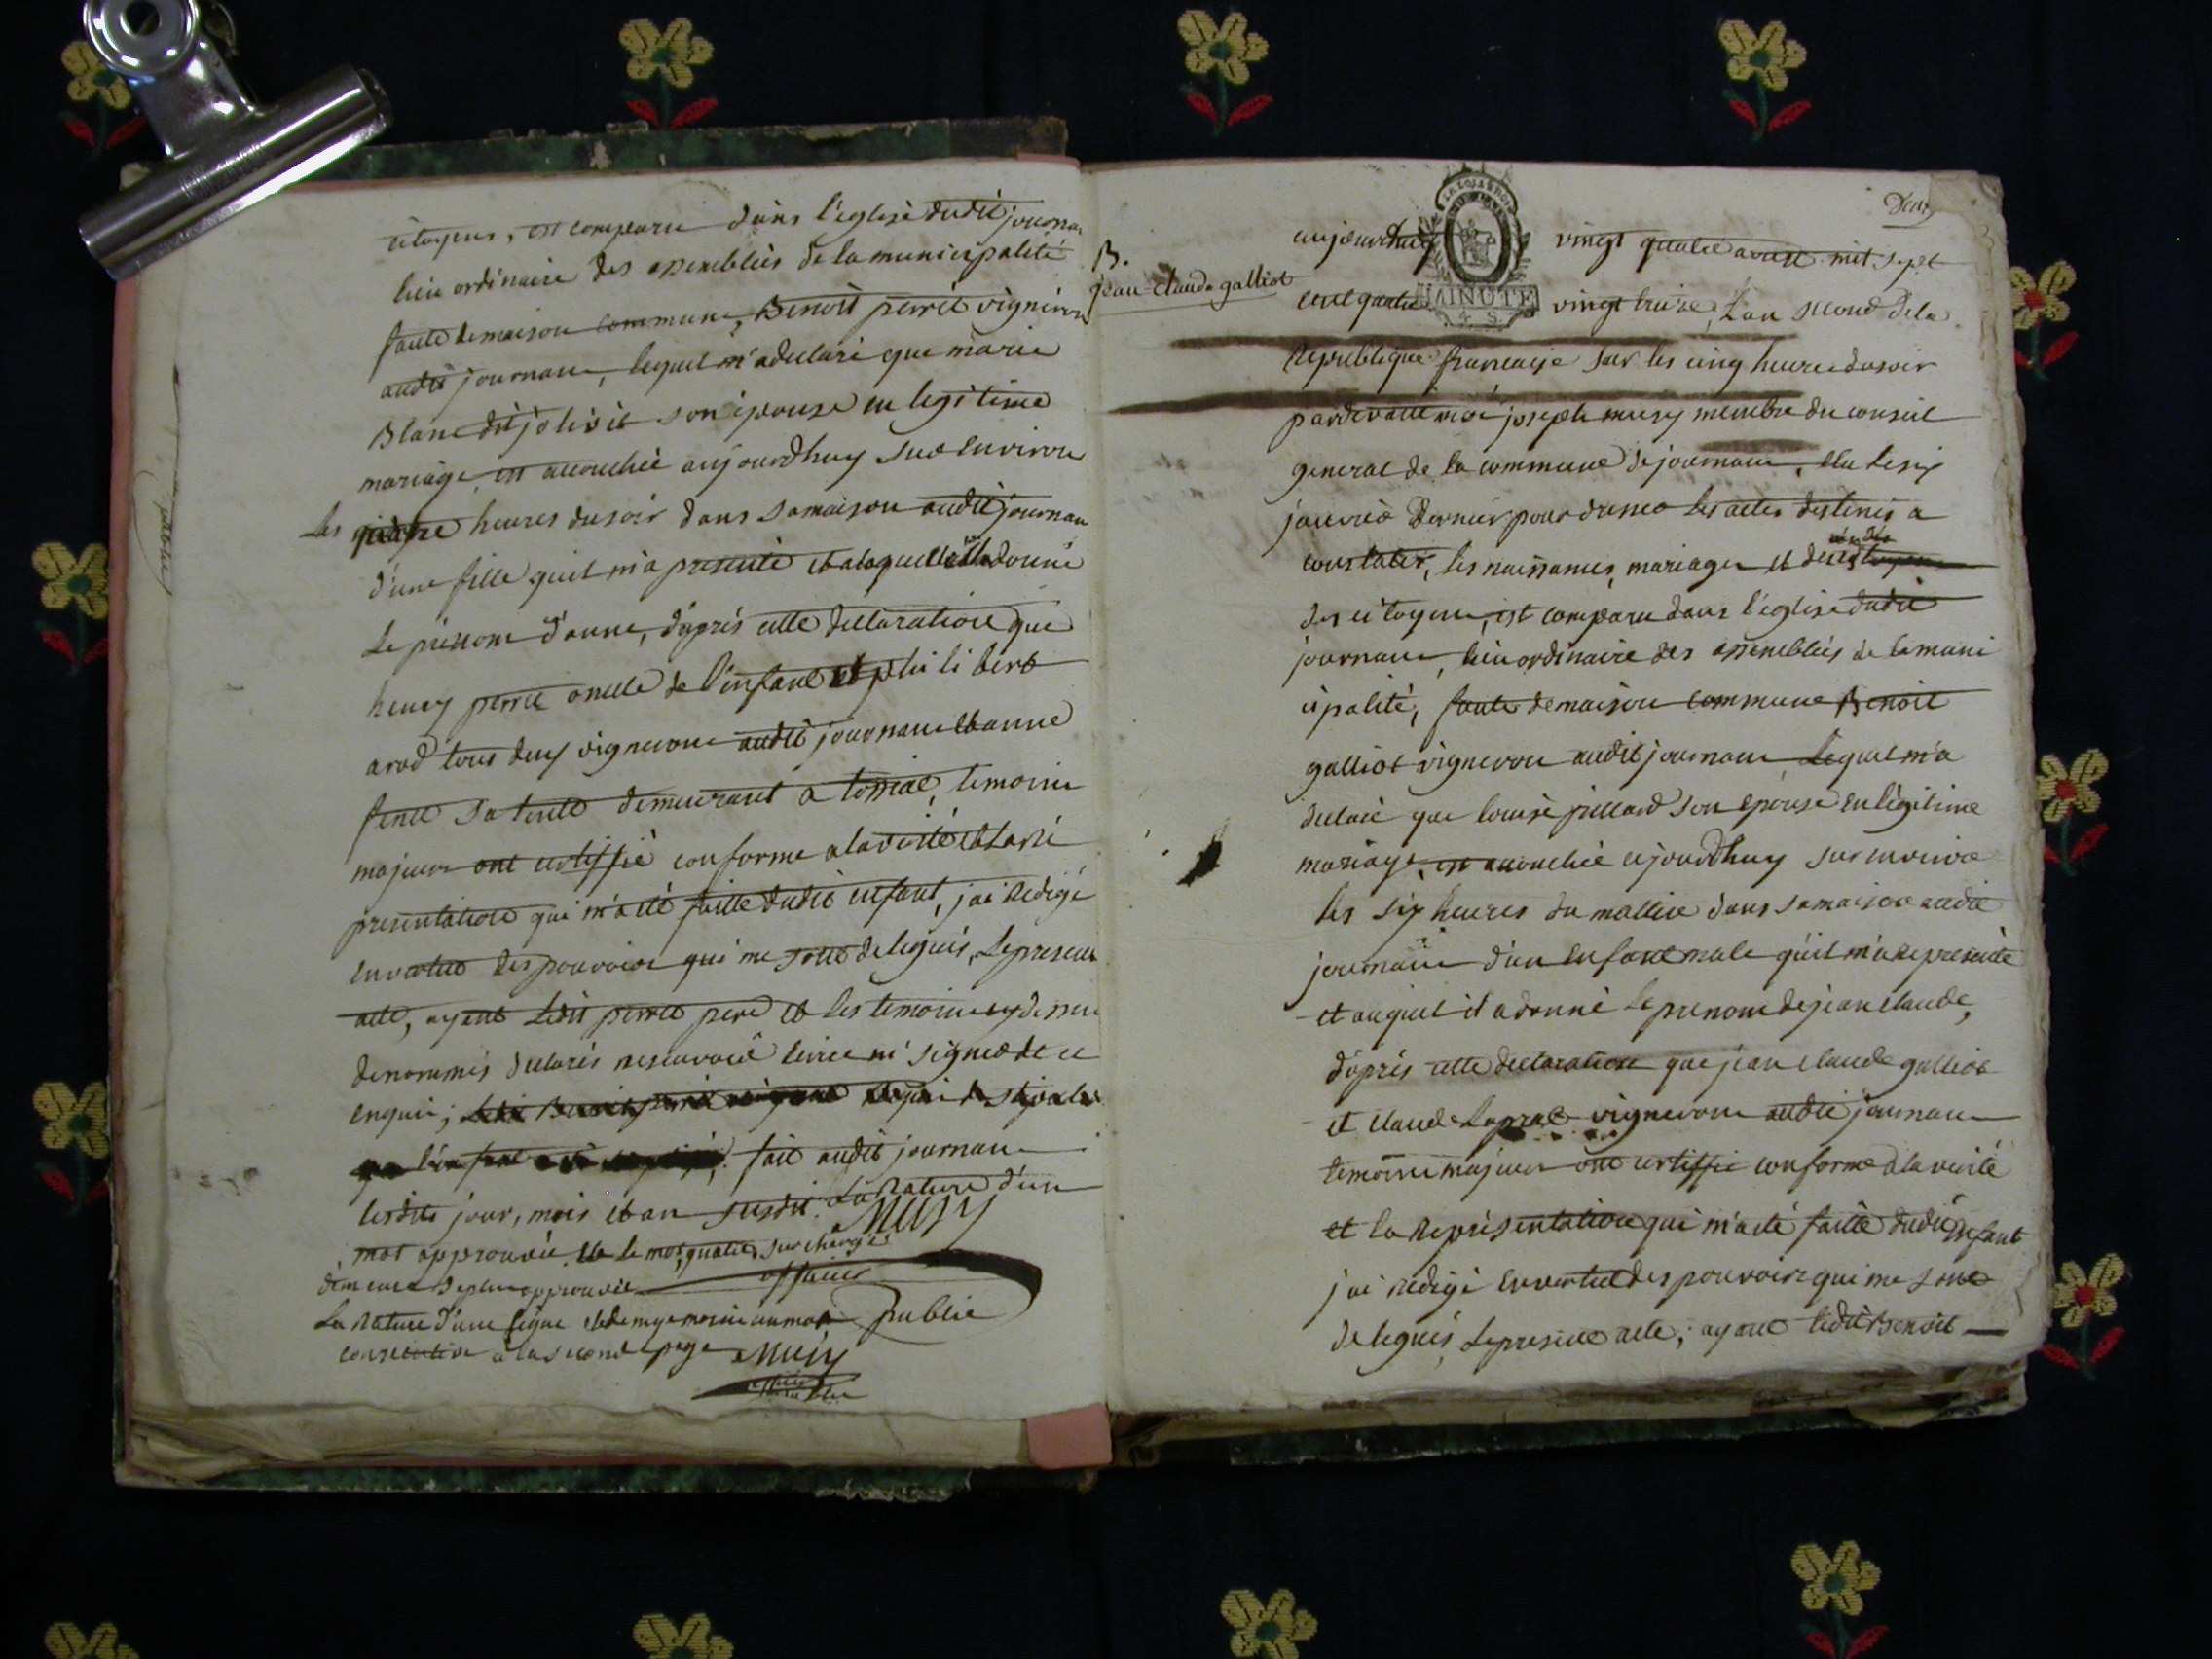 citoyens, est comparu dans l'eglise dudit journan
lieu ordinaire des assemblées de la municipalité
faute de maison commune, Benoit perret vigneron
audit journan, lequel m'a declaré que marie
Blanc dit jolivet son épouse en legitime
mariage, est accouchée aujourdhuy sur environ
les quatre heures du soir dans sa maison audit journan
d'une fille qu'il m'a presenté et a laquelle il a donné
Le prénom d'anne, d'aprés cette declaration que
henry perret oncle de l'enfant et philibert
arod tous deux vignerons audit journan et anne
sa tente demeurant a tossiat, temoins
majeurs ont certiffié conforme a la verité et la ré
presentation qui m'a été faitte dudit enfant, j'ai redigé
en vertue des pouvoirs qui me sont delegués, Le present
acte, ayant Ledit perret pere et les temoins cy dessus
denommés declarés ne scavoir écrire ni signer de ce
enquis; fait audit journan
lesdits jour, mois et an susdit. La Rature d'un
mot approuvée et le mot, quatre, surchargé Musy
demeure de plus approuvée officier
La Rature d'une ligne et demye moins un mot public
consecutive a la second page Musy
officier public
Deux
B.
jean claude galliot
MINUTE
4. S.
aujourdhuy vingt quatre avril mil sept
cent quatre vingt treize, L'an second de la
Republique francaise sur les cinq heures du soir
pardevant moi joseph musy membre du conseil
general de la commune de journan, elu le six
janvier dernier pour dresser les actes destinés a
constater, les naissances, mariages et décés
des citoyens, est comparu dans l'eglise dudit
journan, lieu ordinaire des assemblées de la muni
cipalité, faute de maison commune Benoit
galliot vigneron audit journan, Lequel m'a
declaré que Louise juillard son epouse en légitime
mariage, est accouchée ajourdhuy sur environ
les six heures du mattin dans sa maison audit
journan d'un enfant male qu'il m'a representé
et auquel il a donné le prenom de jean claude,
d'aprés cette declaration que jean claude galliot
et claude Laprat vignerons audit journan
temoins majeurs ont certiffié conforme a la verité
et la Représentation qui m'a eté faitte dudit enfant
j'ai redigé en vertue des pouvoirs qui me sont
delegués, Le present acte; ayant ledit Benoit